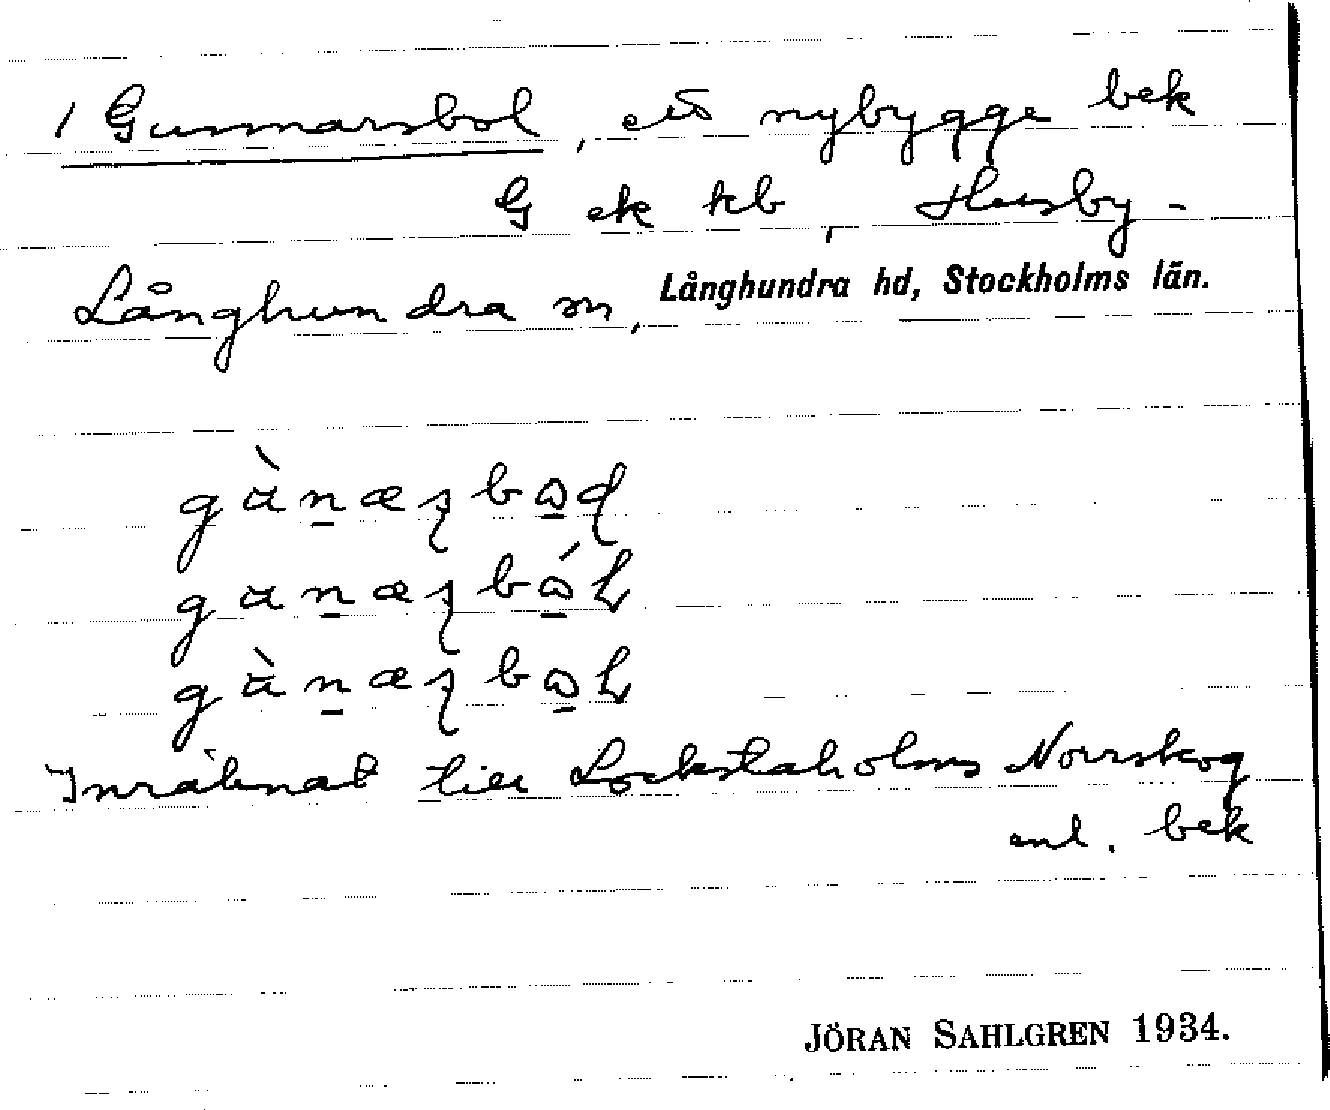 1 Gunnarsbol, ett nybygge bek
G ek kb, Husby-
Långhundra sn, Långhundra hd, Stockholms län.
Inräknat till Lockstaholms Norrskog
enl. bek
JÖRAN SAHLGREN 1934.